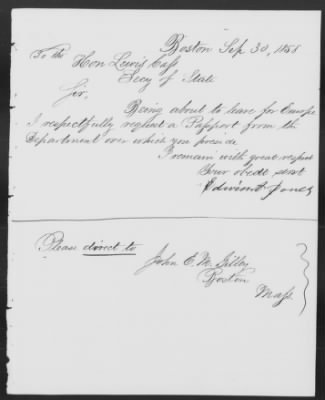 Boston Sep 30, 1858
To the
Hon Lewis Cass
Secy of State
Sir,
Being about to leave for Europe
I respectfully request a Passport from the
Department over which you preside
I remain with great respect
Your obedt servt
Edwin F. Jones
Please direct to
John E. M. Gilley
Boston
Mass.